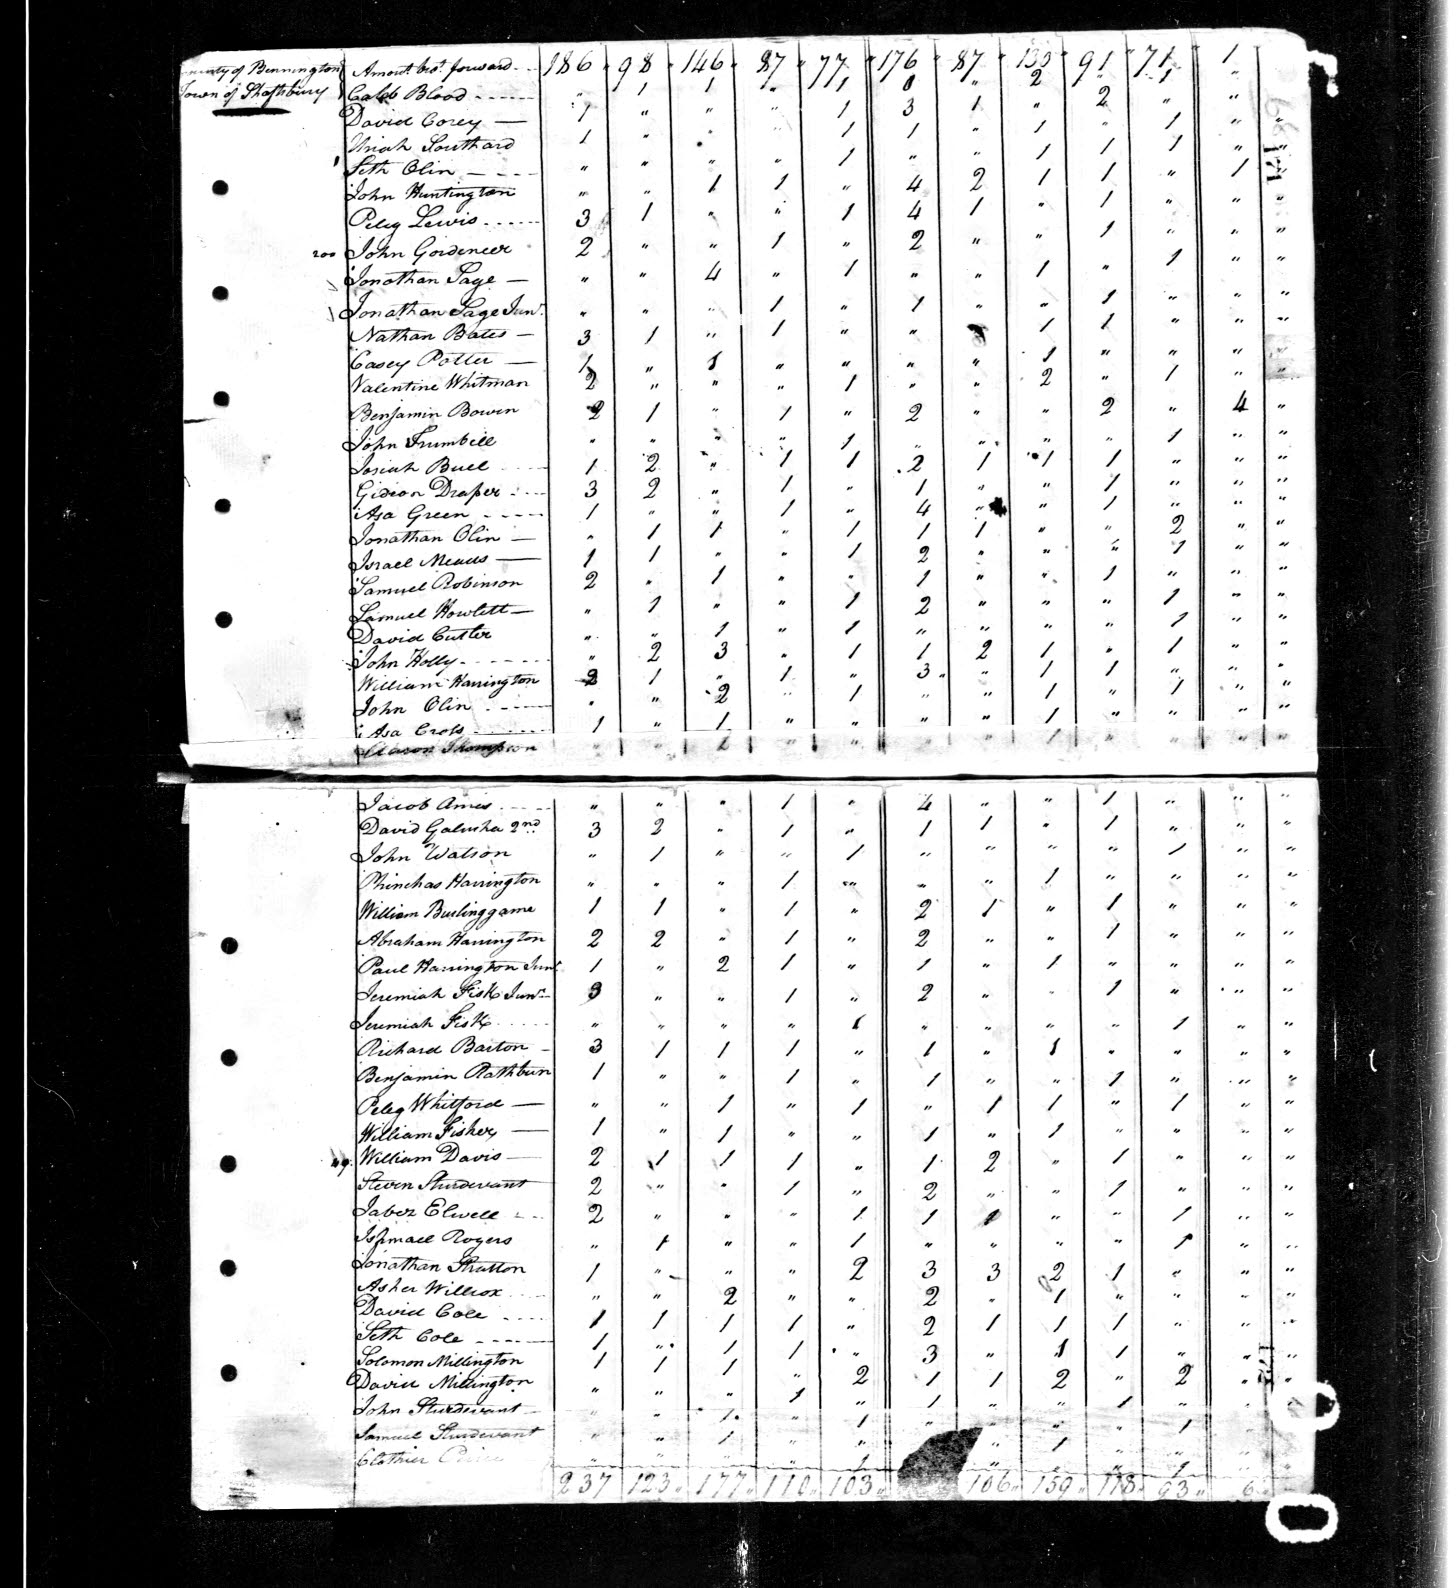 County of Bennington Amount brot. forward 186 " 98 " 146 " 87 " 77 " 176 " 87 " 135 " 91 " 71 " 1
Town of Shaftsbury Caleb Blood " 1 1 " 1 8 " 2 " 1 "
David Corey 1 " " " 1 3 1 " 2 " " "
Uriah Southard 1 " " " 1 1 " 1 " 1 " "
Seth Olin " " " " 1 " " 1 1 1 " "
John Huntington " " 1 1 " 4 2 1 1 " 1 "
Peleg Lewis 3 1 " " 1 4 1 " 1 " " "
200 John Gordeneer 2 " " 1 " 2 " " 1 " " "
Jonathan Page " " 4 " 1 " " 1 " 1 " "
Jonathan Page Junr. " " " 1 " 1 " " 1 " " "
Nathan Bates 3 1 " 1 " " " 1 1 " " "
Casey Potter 1 " 1 " " " " 1 " " " "
Valentine Whitman 2 " " " 1 " " 2 " 1 " "
Benjamin Bowen 2 1 " 1 " 2 " " 2 " 4 "
John Trumbill " " " " 1 " " " " 1 " "
Josiah Buel 1 2 " 1 1 2 1 1 1 " " "
Gideon Draper 3 2 " 1 " 1 " " 1 " " "
Asa Green 1 " " 1 " 4 " " 1 " " "
Jonathan Olin " 1 1 " 1 1 1 " " 2 " "
Israel Meads 1 1 " " 1 2 " " " 1 " "
Samuel Robinson 2 " 1 " " 1 " " 1 " " "
Samuel Howlett " 1 " " 1 2 " " " 1 " "
David Cutler " " 1 " 1 " " " " 1 " "
John Holly " 2 3 " 1 1 2 1 " 1 " "
William Harrington 2 1 " 1 " 3 " 1 1 " " "
John Olin " " 2 " 1 " " 1 " 1 " "
Asa Cross 1 " 1 " " " " 1 " " " "
Aaron Thompson " " 2 " " " " 1 " " " "
Jacob Ames " " " 1 " 4 " " 1 " " "
David Galusha 2nd 3 2 " 1 " 1 1 " 1 " " "
John Watson " 1 " " 1 " " " " 1 " "
Phinehas Harrington " " " 1 " " " 1 " " " "
William Burlinggame 1 1 " 1 " 2 1 " 1 " " "
Abraham Harrington 2 2 " 1 " 2 " " 1 " " "
Paul Harrington Junr. 1 " 2 1 " 1 " 1 " " " "
Jeremiah Fisk Junr. 3 " " 1 " 2 " " 1 " " "
Jeremiah Fisk " " " " 1 " " " " 1 " "
Richard Barton 3 1 1 1 " 1 " 1 " " " "
Benjamin Rathbun 1 " " 1 " 1 " " 1 " " "
Peleg Whitford " " 1 " 1 " 1 1 " 1 " "
William Fisher 1 " 1 " " 1 " 1 " " " "
William Davis 2 1 1 1 " 1 2 " 1 " " "
Steven Sturdevant 2 " " 1 " 2 " " 1 " " "
Jabez Elwell 2 " " " 1 1 1 " " 1 " "
Ishmael Rogers " 1 " " 1 " " " " 1 " "
Jonathan Stratton 1 " " " 2 3 3 2 1 " " "
Asher Willcox " " 2 " " 2 " 1 " " " "
David Cole 1 1 1 1 " 2 1 1 1 " " "
Seth Cole 1 " 1 1 " 3 " 1 1 " " "
Solomon Millington 1 1 1 " 2 1 1 2 " 2 " "
David Millington " " " 1 " 1 " " 1 " " "
John Sturdevant " " 1 " 1 " " " " 1 " "
Samuel Sturdevant " " 1 " " " 1 " " "
Clothier " " " " 1 " " " 1 " "
237 123 " 177 " 110 " 103 " 106 " 159 " 118 " 93 " 6 "